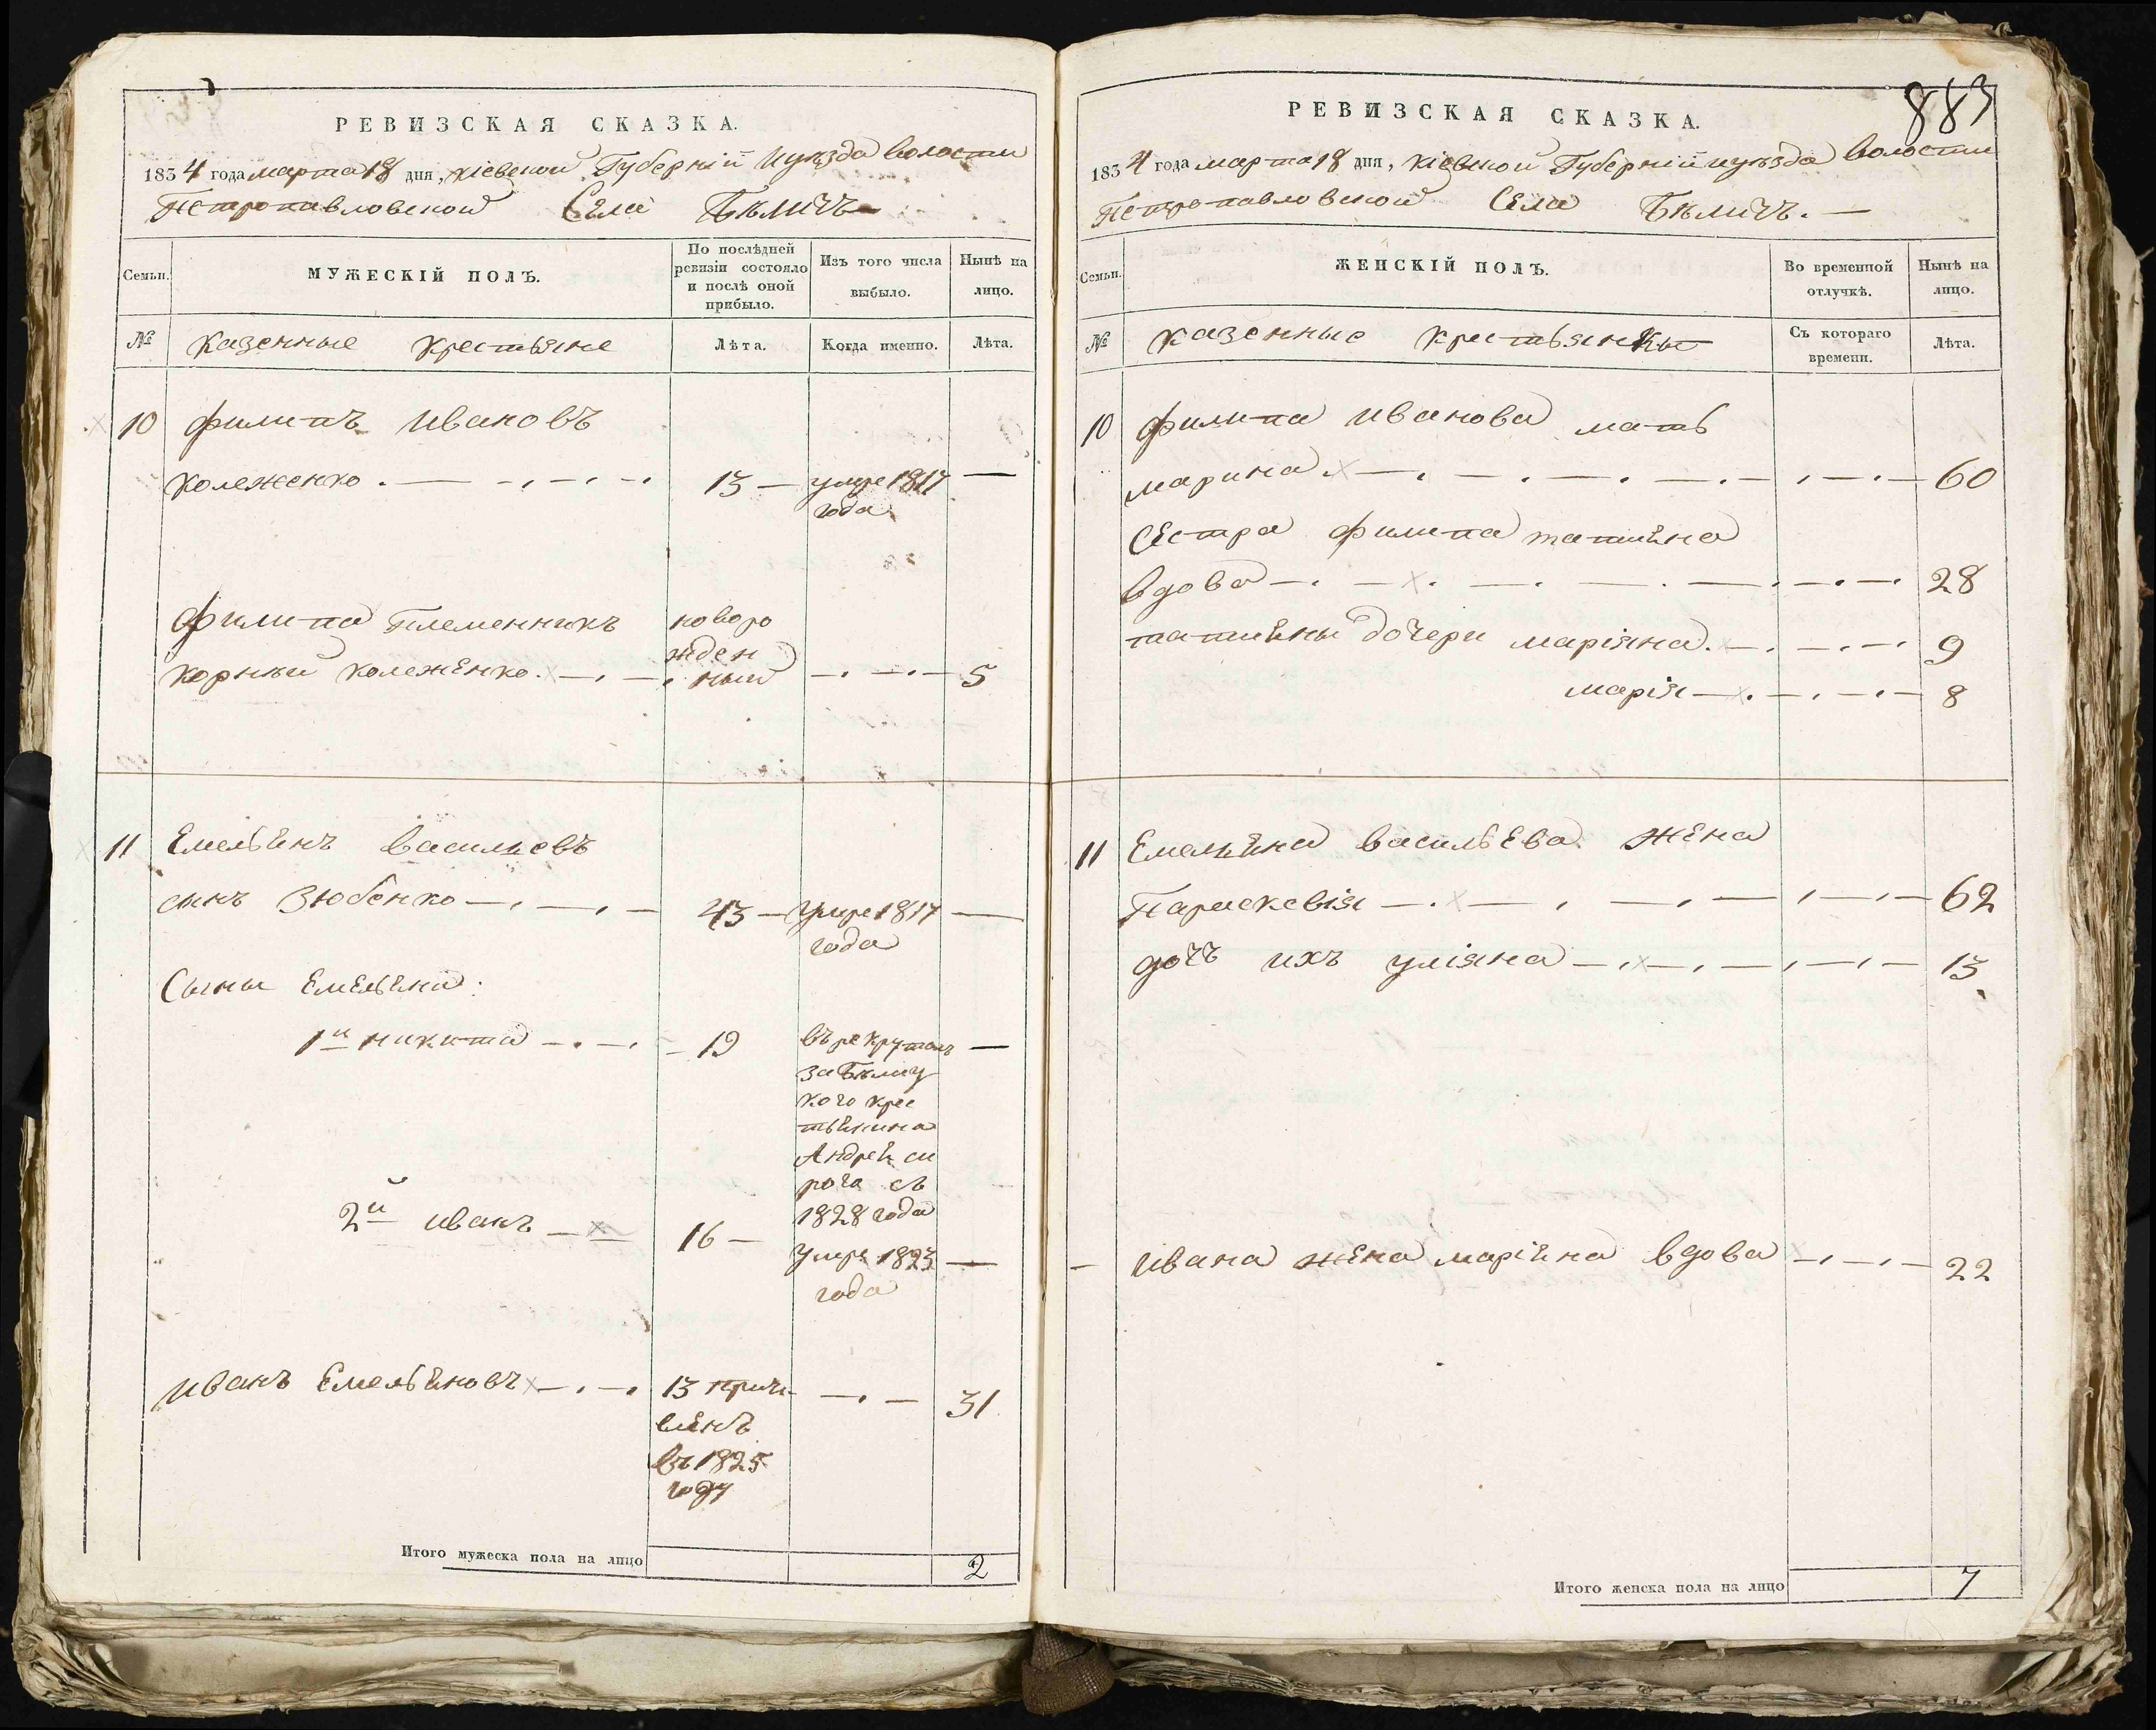 РЕВИЗСКАЯ СКАЗКА.
1834 года марта 18 дня, Кіевской Губерніи и уѣзда Волости
Петропавловской Села Бѣличъ
Семьи.
МУЖЕСКІЙ ПОЛЪ.
По послѣдней
ревизіи состояло
и послѣ оной
прибыло.
Изъ того числа
выбыло.
Нынѣ на
лицо.
№
Казенные Крестьяне
Лѣта.
Когда именно.
Лѣта.
10 Филипъ Ивановъ
Колеженко . — 13 — умре 1817 —
года
Филипа Племенникъ новоро
жден
Корнѣй Колеженко . — ный — 5
11 Емельянъ Васильевъ
сынъ Зюбенко — 43 — умре 1817 —
года
Сыны Емельяна:
1й Никита — 19 въ рекрутахъ —
за Бѣлиц
кого крес
тьянина
Андрея си
рога съ
1828 года
2й Иванъ — 16 —
умре 1823 —
года
Иванъ Емельяновъ — 13 причи — 31
сленъ
въ 1825
году
Итого мужеска пола на лицо 2
883
РЕВИЗСКАЯ СКАЗКА.
1834 года марта 18 дня, Кіевской Губерніи и уѣзда Волости
Петропавловской Села Бѣличъ. —
Семьи.
ЖЕНСКІЙ ПОЛЪ.
Во временной
отлучкѣ.
Нынѣ на
лицо.
№
Казенные Крестьянки
Съ котораго
времени.
Лѣта.
10 Филипа Иванова мать
Марина . — 60
Сестра Филипа Татияна
вдова — 28
Татияны дочери Маріяна . — 9
Марія — 8
11 Емельяна Васильева жена
Параскевія — 62
дочъ ихъ Уліяна — 13
— Ивана жена Маріяна вдова — 22
Итого женска пола на лицо 7